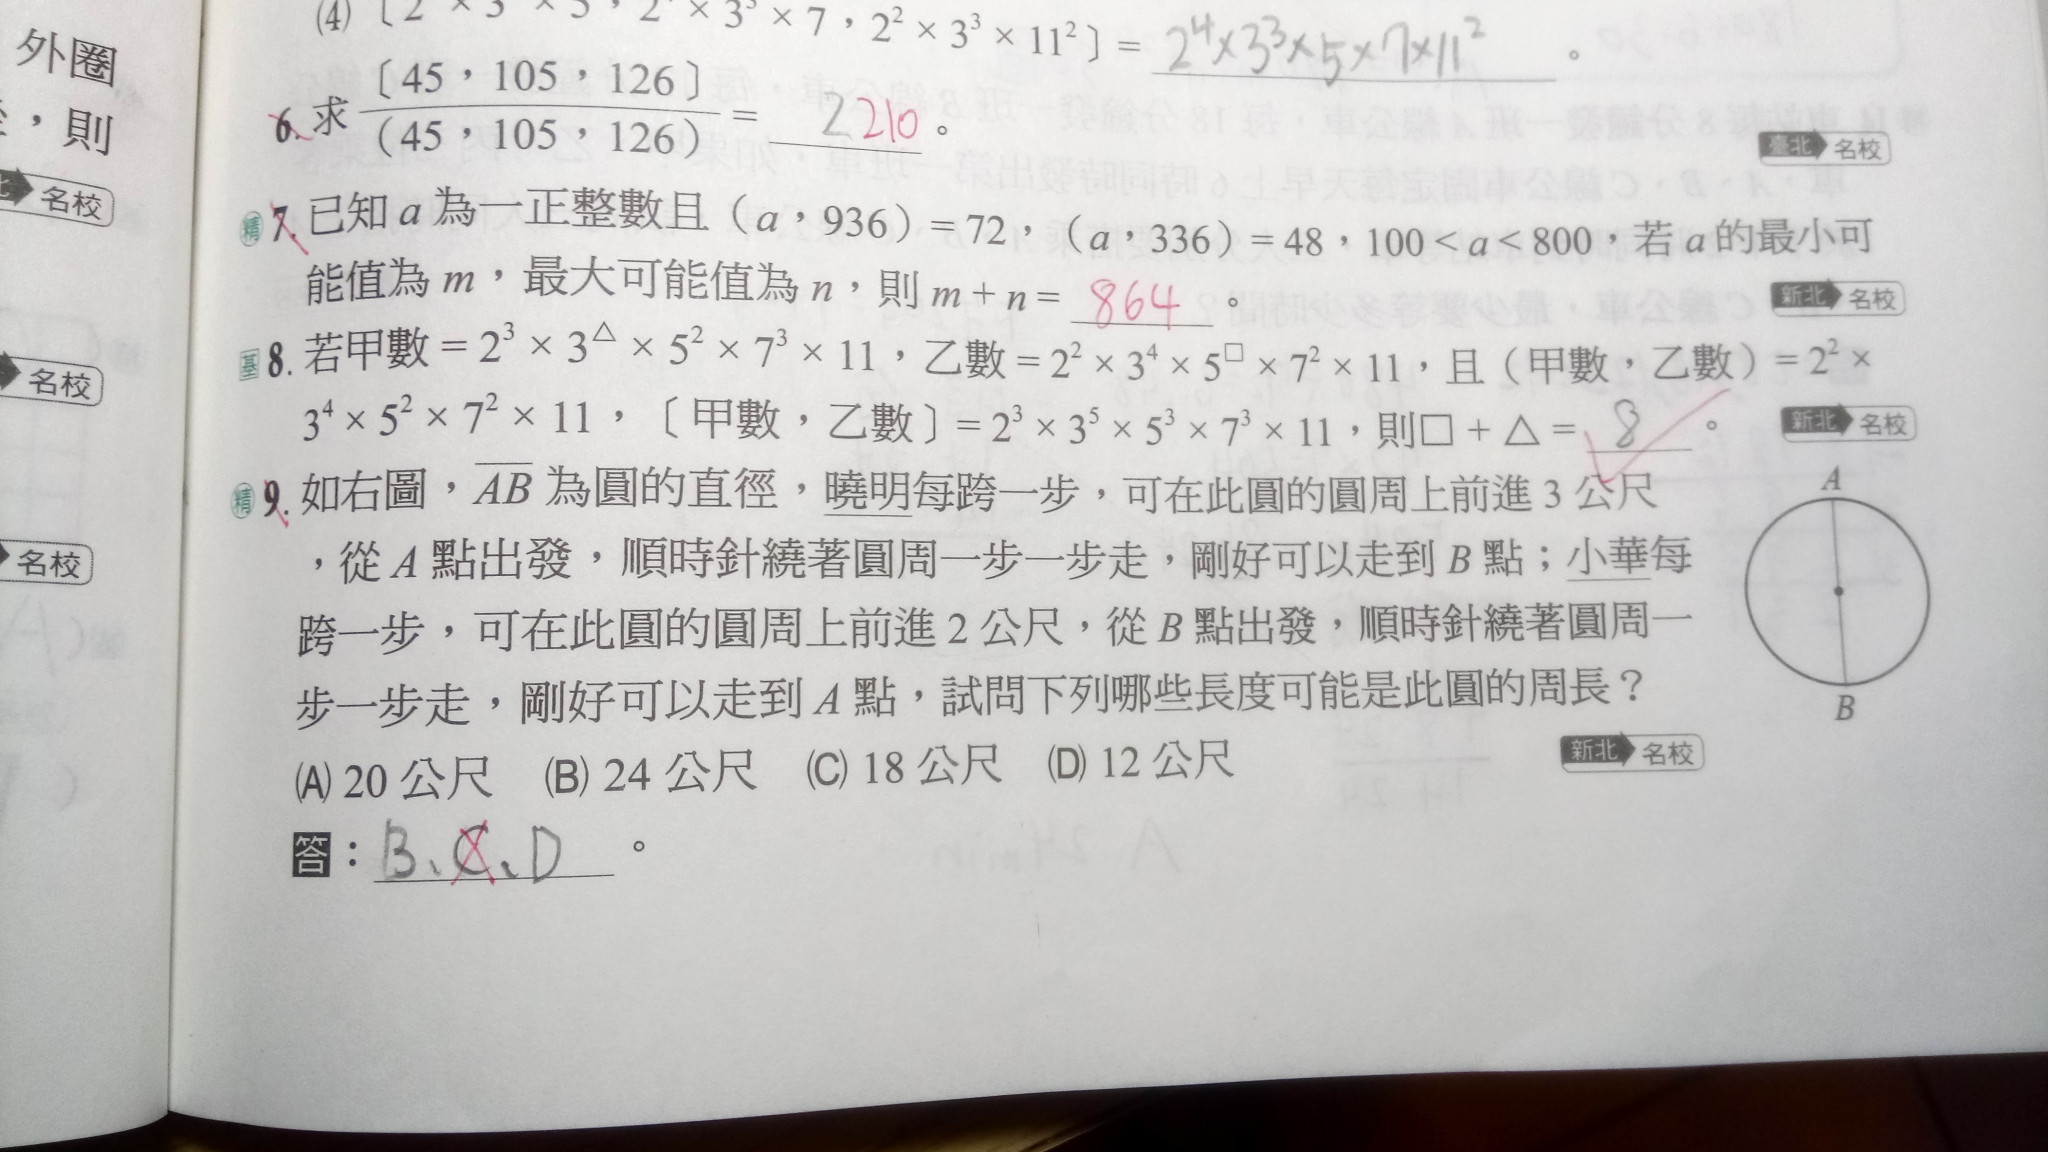 外圈
，則
名校
名校
名校
⑷〔2 × 3 × 5，2 × 3³ × 7，2² × 3³ × 11²〕= 2⁴×3³×5×7×11²。
6. 求〔45，105，126〕/（45，105，126）= 2 210。
臺北 名校
精 7. 已知 a 為一正整數且（a，936）= 72，（a，336）= 48，100 < a < 800，若 a 的最小可
能值為 m，最大可能值為 n，則 m + n = 864。
新北 名校
基 8. 若甲數 = 2³ × 3^△ × 5² × 7³ × 11，乙數 = 2² × 3⁴ × 5^□ × 7² × 11，且（甲數，乙數）= 2² ×
3⁴ × 5² × 7² × 11，〔甲數，乙數〕= 2³ × 3⁵ × 5³ × 7³ × 11，則□ + △ = 8。
新北 名校
精 9. 如右圖，AB 為圓的直徑，曉明每跨一步，可在此圓的圓周上前進 3 公尺
，從 A 點出發，順時針繞著圓周一步一步走，剛好可以走到 B 點；小華每
跨一步，可在此圓的圓周上前進 2 公尺，從 B 點出發，順時針繞著圓周一
步一步走，剛好可以走到 A 點，試問下列哪些長度可能是此圓的周長？
A
B
(A) 20 公尺 (B) 24 公尺 (C) 18 公尺 (D) 12 公尺
新北 名校
答：B、C、D。